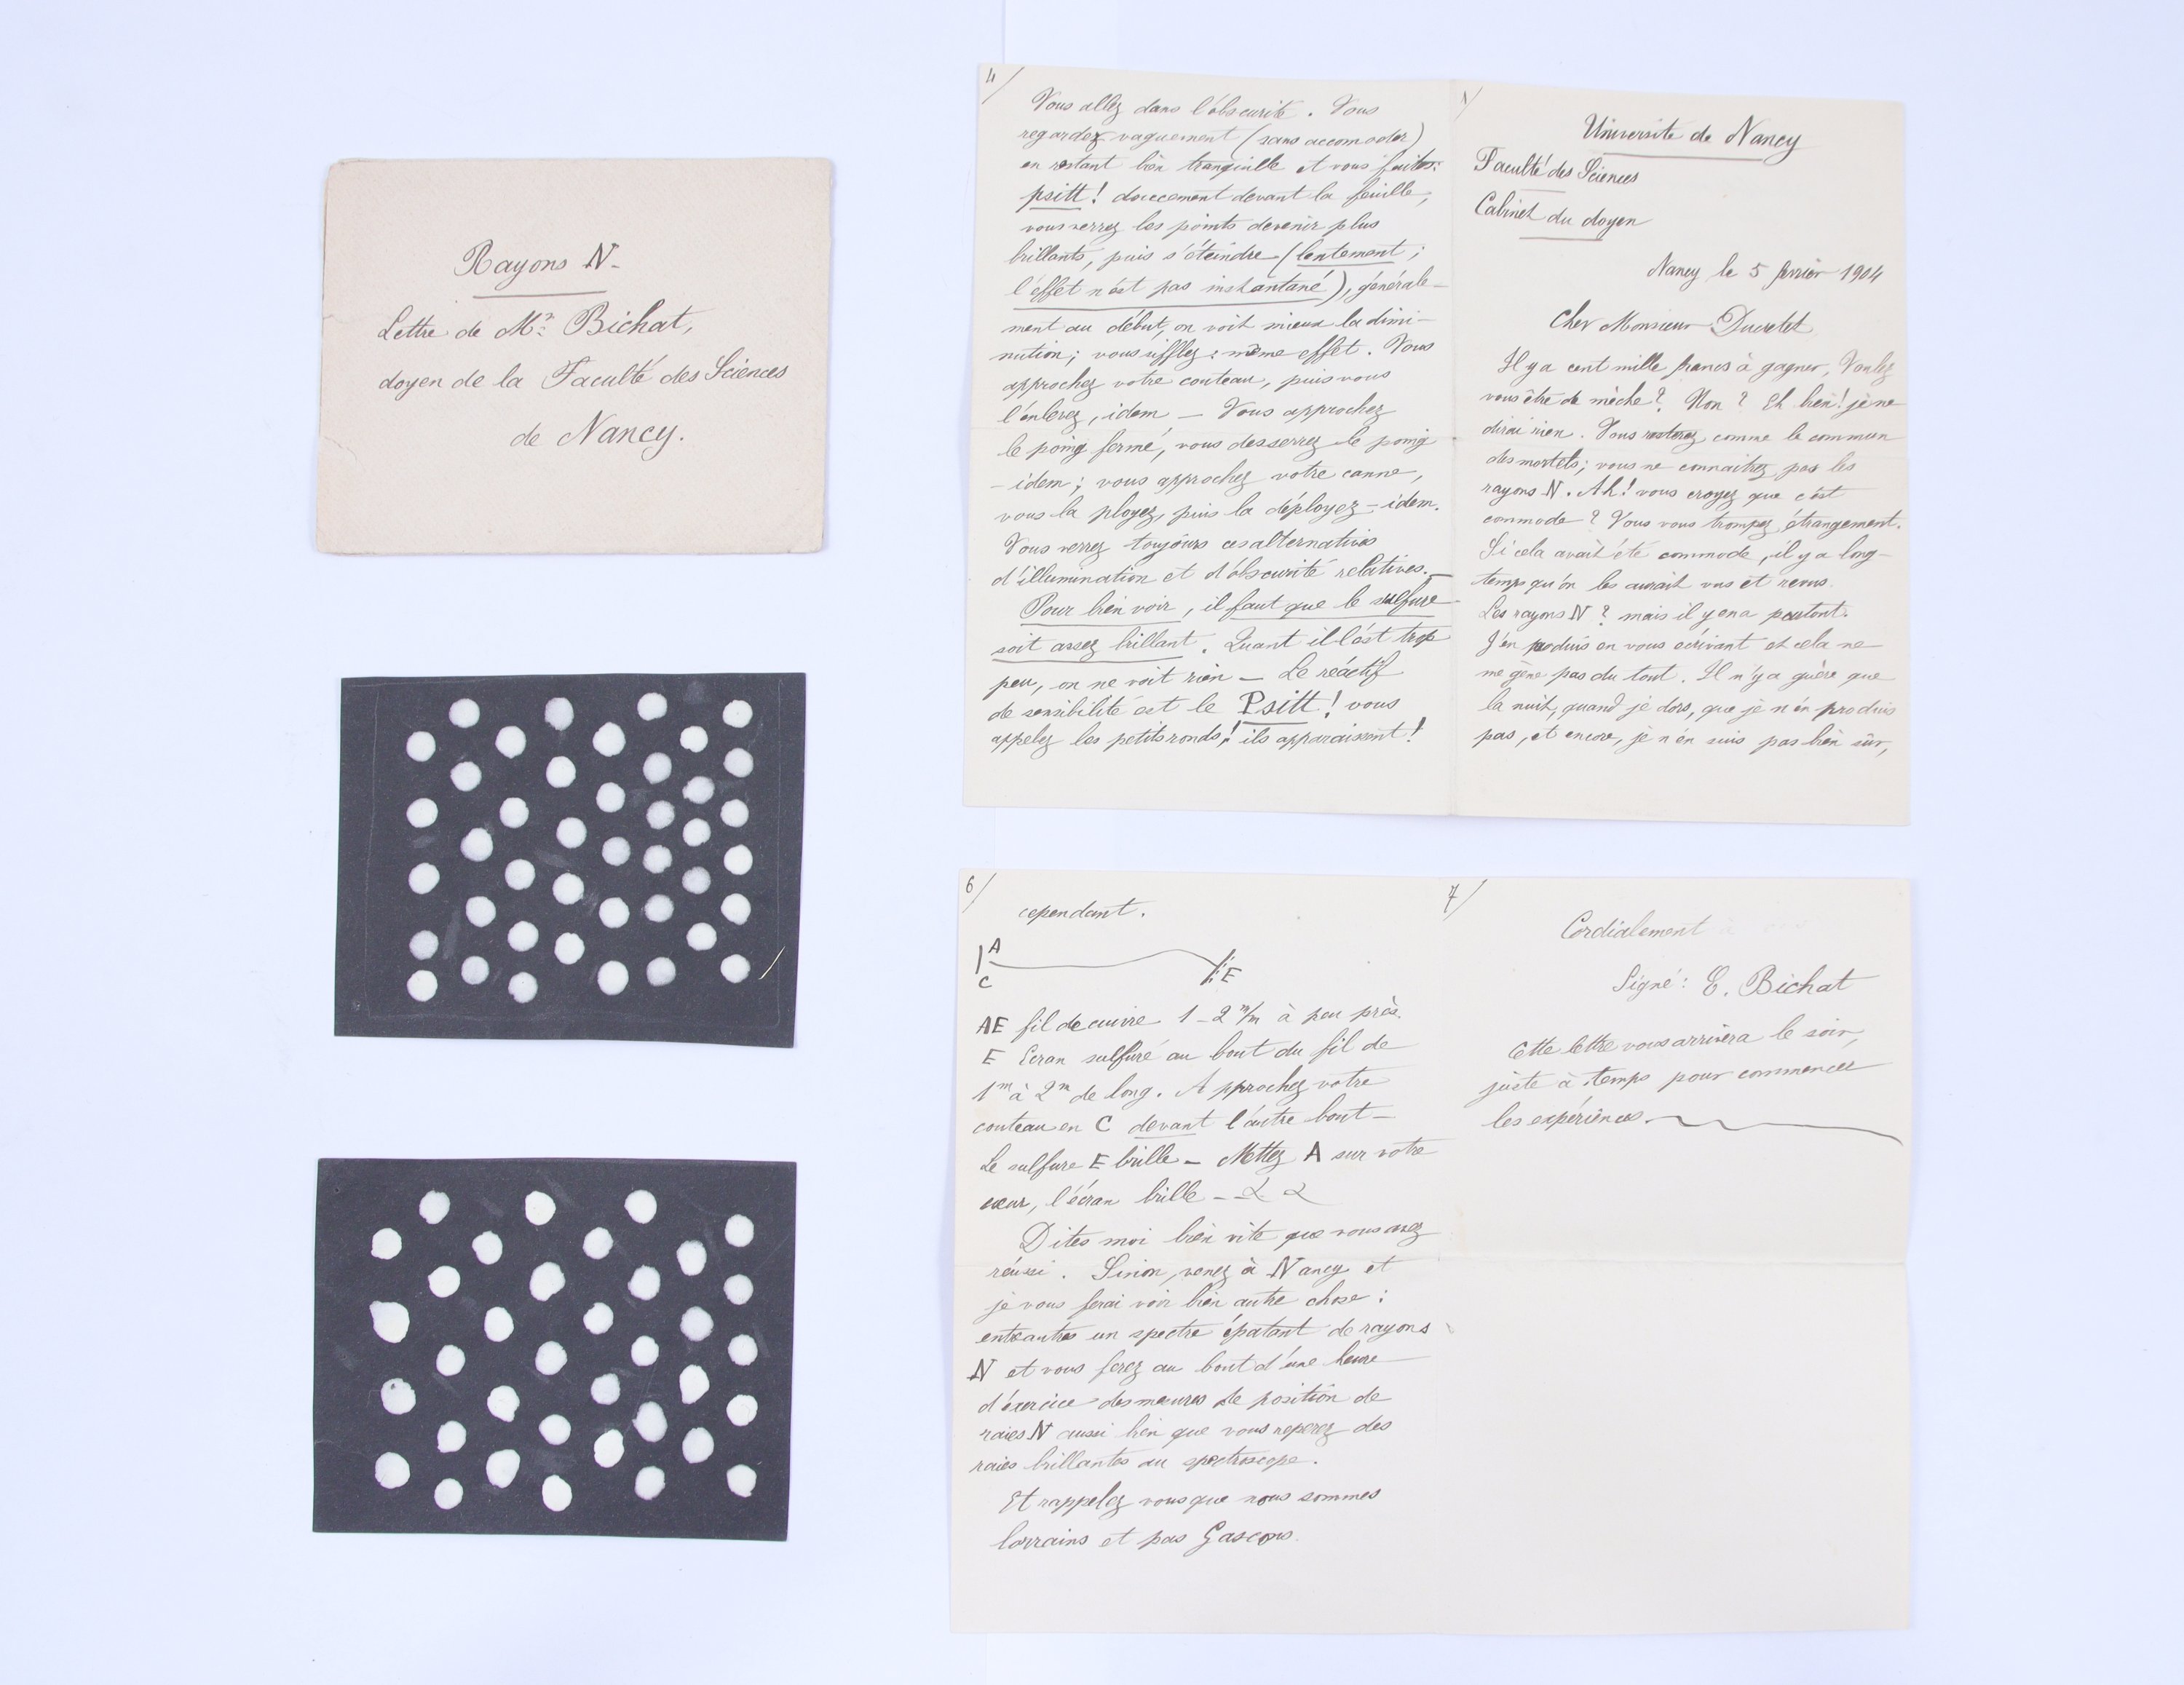 Rayons N-
Lettre de Mr: Bichat,
doyen de la Faculté des Sciences
de Nancy.
4/
Vous allez dans l'obscurité. Vous
regardez vaguement (sans accomoder)
en restant bien tranquille et vous faites:
psitt! doucement devant la feuille,
vous verrez les points devenir plus
brillants, puis s'éteindre (lentement;
l'effet n'est pas instantané), générale-
ment au début, on voit mieux la dimi-
nution; vous sifflez: même effet. Vous
approchez votre couteau, puis vous
l'enlevez, idem - Vous approchez
le poing fermé, vous desserrez le poing
- idem; vous approchez votre canne,
vous la ployez, puis la déployez - idem.
Vous verrez toujours ces alternatives
d'illumination et d'obscurité relatives. -
Pour bien voir, il faut que le sulfure
soit assez brillant. Quant il l'est trop
peu, on ne voit rien - Le réactif
de sensibilité est le Psitt! vous
appelez les petits ronds! ils apparaissent!
1/
Université de Nancy
Faculté des Sciences
Cabinet du doyen
Nancy le 5 février 1904
Cher Monsieur Ducretet
Il y a cent mille francs à gagner, Voulez
vous être de mèche? Non? Eh bien! je ne
dirai rien. Vous resterez comme le commun
des mortels; vous ne connaitrez pas les
rayons N. Ah! vous croyez que c'est
commode? Vous vous trompez étrangement.
Si cela avait été commode, il y a long-
temps qu'on les aurait vus et revus.
Les rayons N? mais il y en a partout.
J'en produis en vous écrivant et cela ne
me gêne pas du tout. Il n'y a guère que
la nuit, quand je dors, que je n'en produis
pas, et encore, je n'en suis pas bien sûr,
6/
cependant.
A
C
E
AE fil de cuivre 1-2 m/m à peu près.
E Ecran sulfuré au bout du fil de
1m à 2m de long. Approchez votre
couteau en C devant l'autre bout -
Le sulfure E brille - Mettez A sur votre
cœur, l'écran brille -
Dites moi bien vite que vous avez
réussi. Sinon, venez à Nancy et
je vous ferai voir bien autre chose:
entr'autres un spectre épatant de rayons
N et vous ferez au bout d'une heure
d'exercice des mesures de position de
raies N aussi bien que vous reperez des
raies brillantes au spectroscope.
Et rappelez vous que nous sommes
lorrains et pas Gascons.
7/
Cordialement
Signé: E. Bichat
Cette lettre vous arrivera le soir,
juste à temps pour commencer
les expériences.